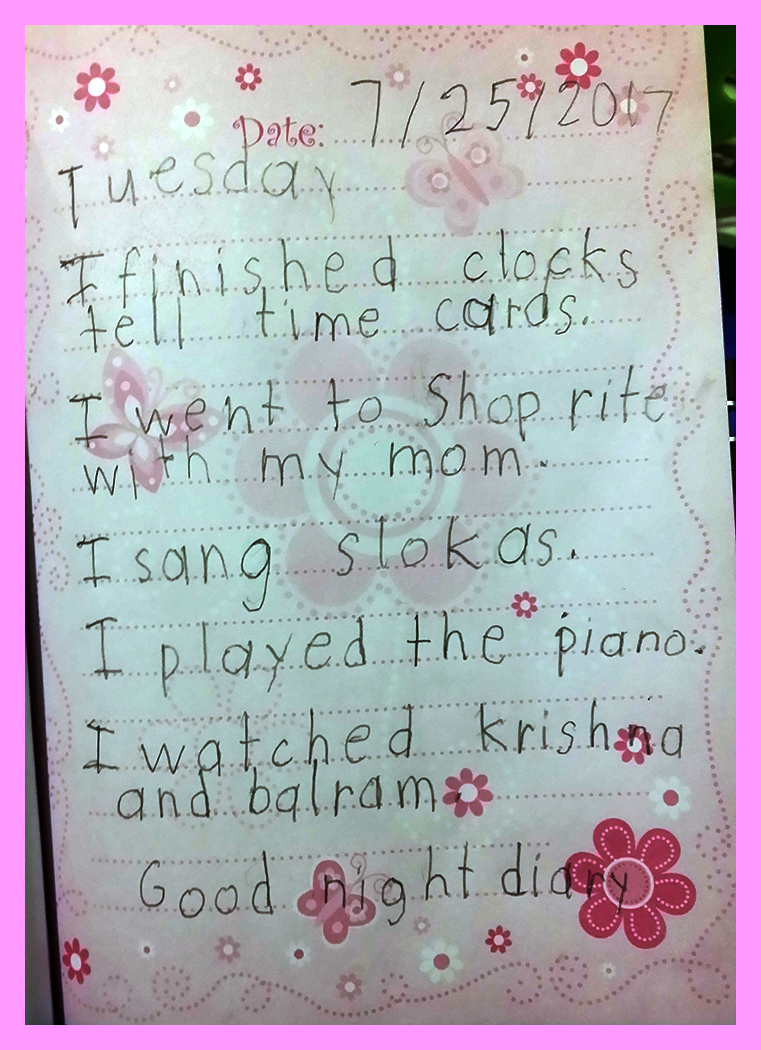 Date: 7/25/2017
Tuesday
I finished clocks
tell time cards.
I went to Shop rite
with my mom.
I sang slokas.
I played the piano.
I watched krishna
and balram.
Good night diary